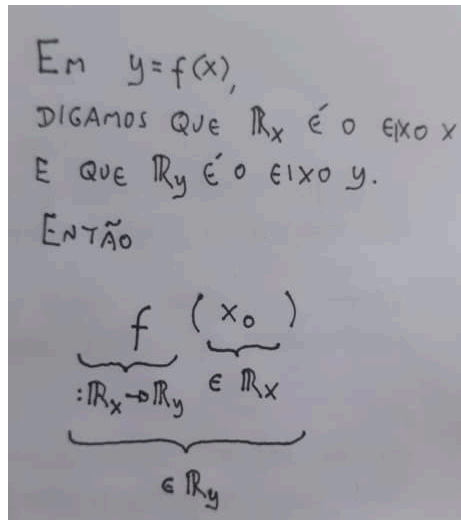 Em y=f(x),
DIGAMOS QUE ℝx É O EIXO x
E QUE ℝy É O EIXO y.
ENTÃO
f (x₀)
:ℝx→ℝy ∈ ℝx
∈ ℝy